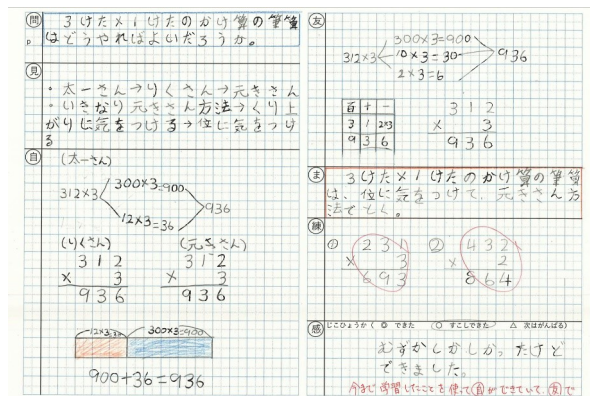 問
3けた×1けたのかけ算の筆算
はどうやればよいだろうか。
見
・太一さん→りくさん→元きさん
・いきなり元きさん方法→くり上
がりに気をつける→位に気をつけ
る
自
(太一さん)
312×3
300×3=900
12×3=36
936
(りくさん)
312
× 3
936
(元きさん)
312
× 3
936
12×3=36
300×3=900
900+36=936
友
312×3
300×3=900
10×3=30
2×3=6
936
百 十 一
3 1 2×3
9 3 6
312
× 3
936
ま
3けた×1けたのかけ算の筆算
は、位に気をつけて、元きさん方
法でとく。
練
① 231
× 3
693
② 432
× 2
864
感
じこひょうか(◎ できた ○ すこしできた △ 次はがんばる)
むずかしかしかったけど
できました。
今まで学習したことを使って自ができていて、友で